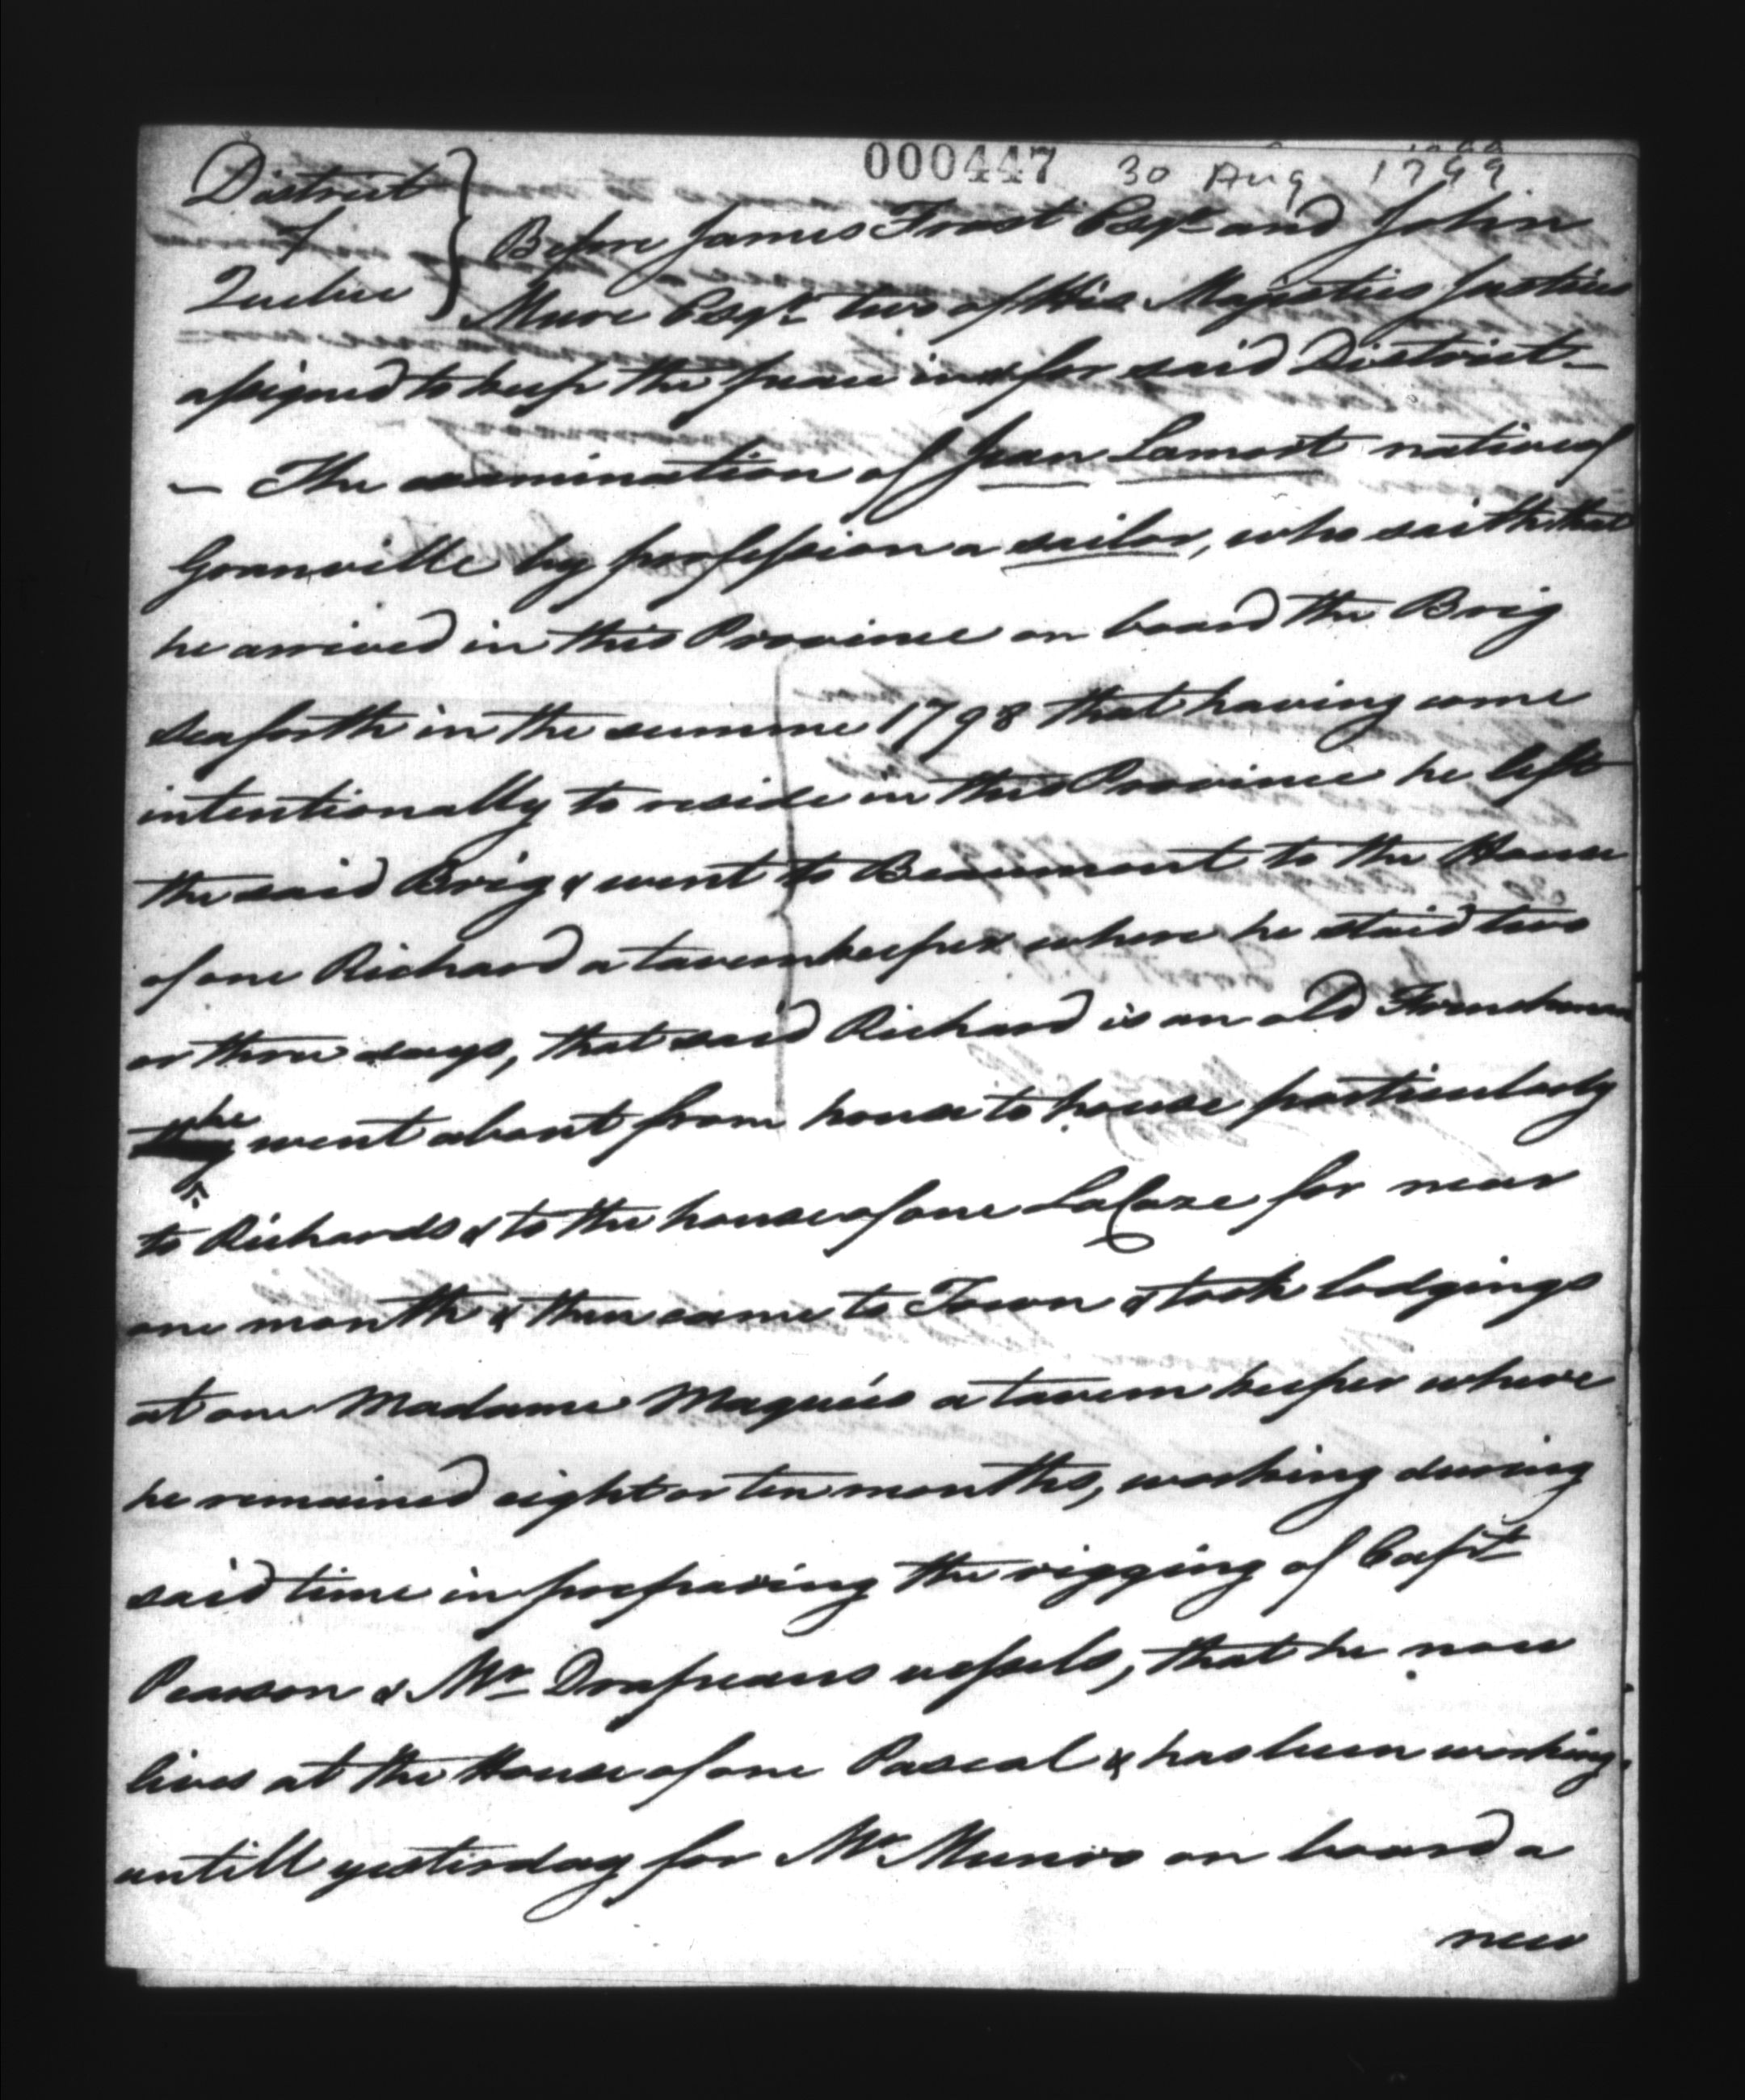 000447 30 Aug 1799
District
of
Quebec
Before James Frost Esqr and John
Mure Esqr two of His Majesties Justices
assigned to keep the peace in & for said District—
— The examination of Jean Lamort native of
Granville by profession a sailor, who saith that
he arrived in this Province on board the Brig
Seaforth in the summe 1798 that having come
intentionally to reside in this Province he left
the said Brig & went to Beaumont to the House
of one Richard a tavernkeeper where he staid two
or three days, that said Richard is an old Frenchman
he went about from house to house particularly
to Richards & to the house of one LaCaze for near
one month & then came to Town & took lodgings
at one Madame Maguies a tavern keeper where
he remained eight or ten months, working during
said time in preparing the rigging of Capt
Pearson & Mr Drapeaus vessels, that he now
lives at the House of one Pascal & has been working
untill yesterday for Mr Munro on board a
new